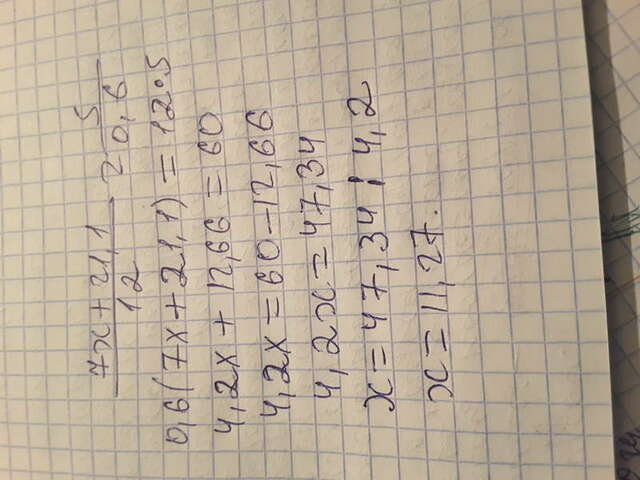 7x+21,1 / 12 = 5 / 0,6
0,6(7x+21,1)=12·5
4,2x+12,66=60
4,2x=60-12,66
4,2x=47,34
x=47,34:4,2
x=11,27.